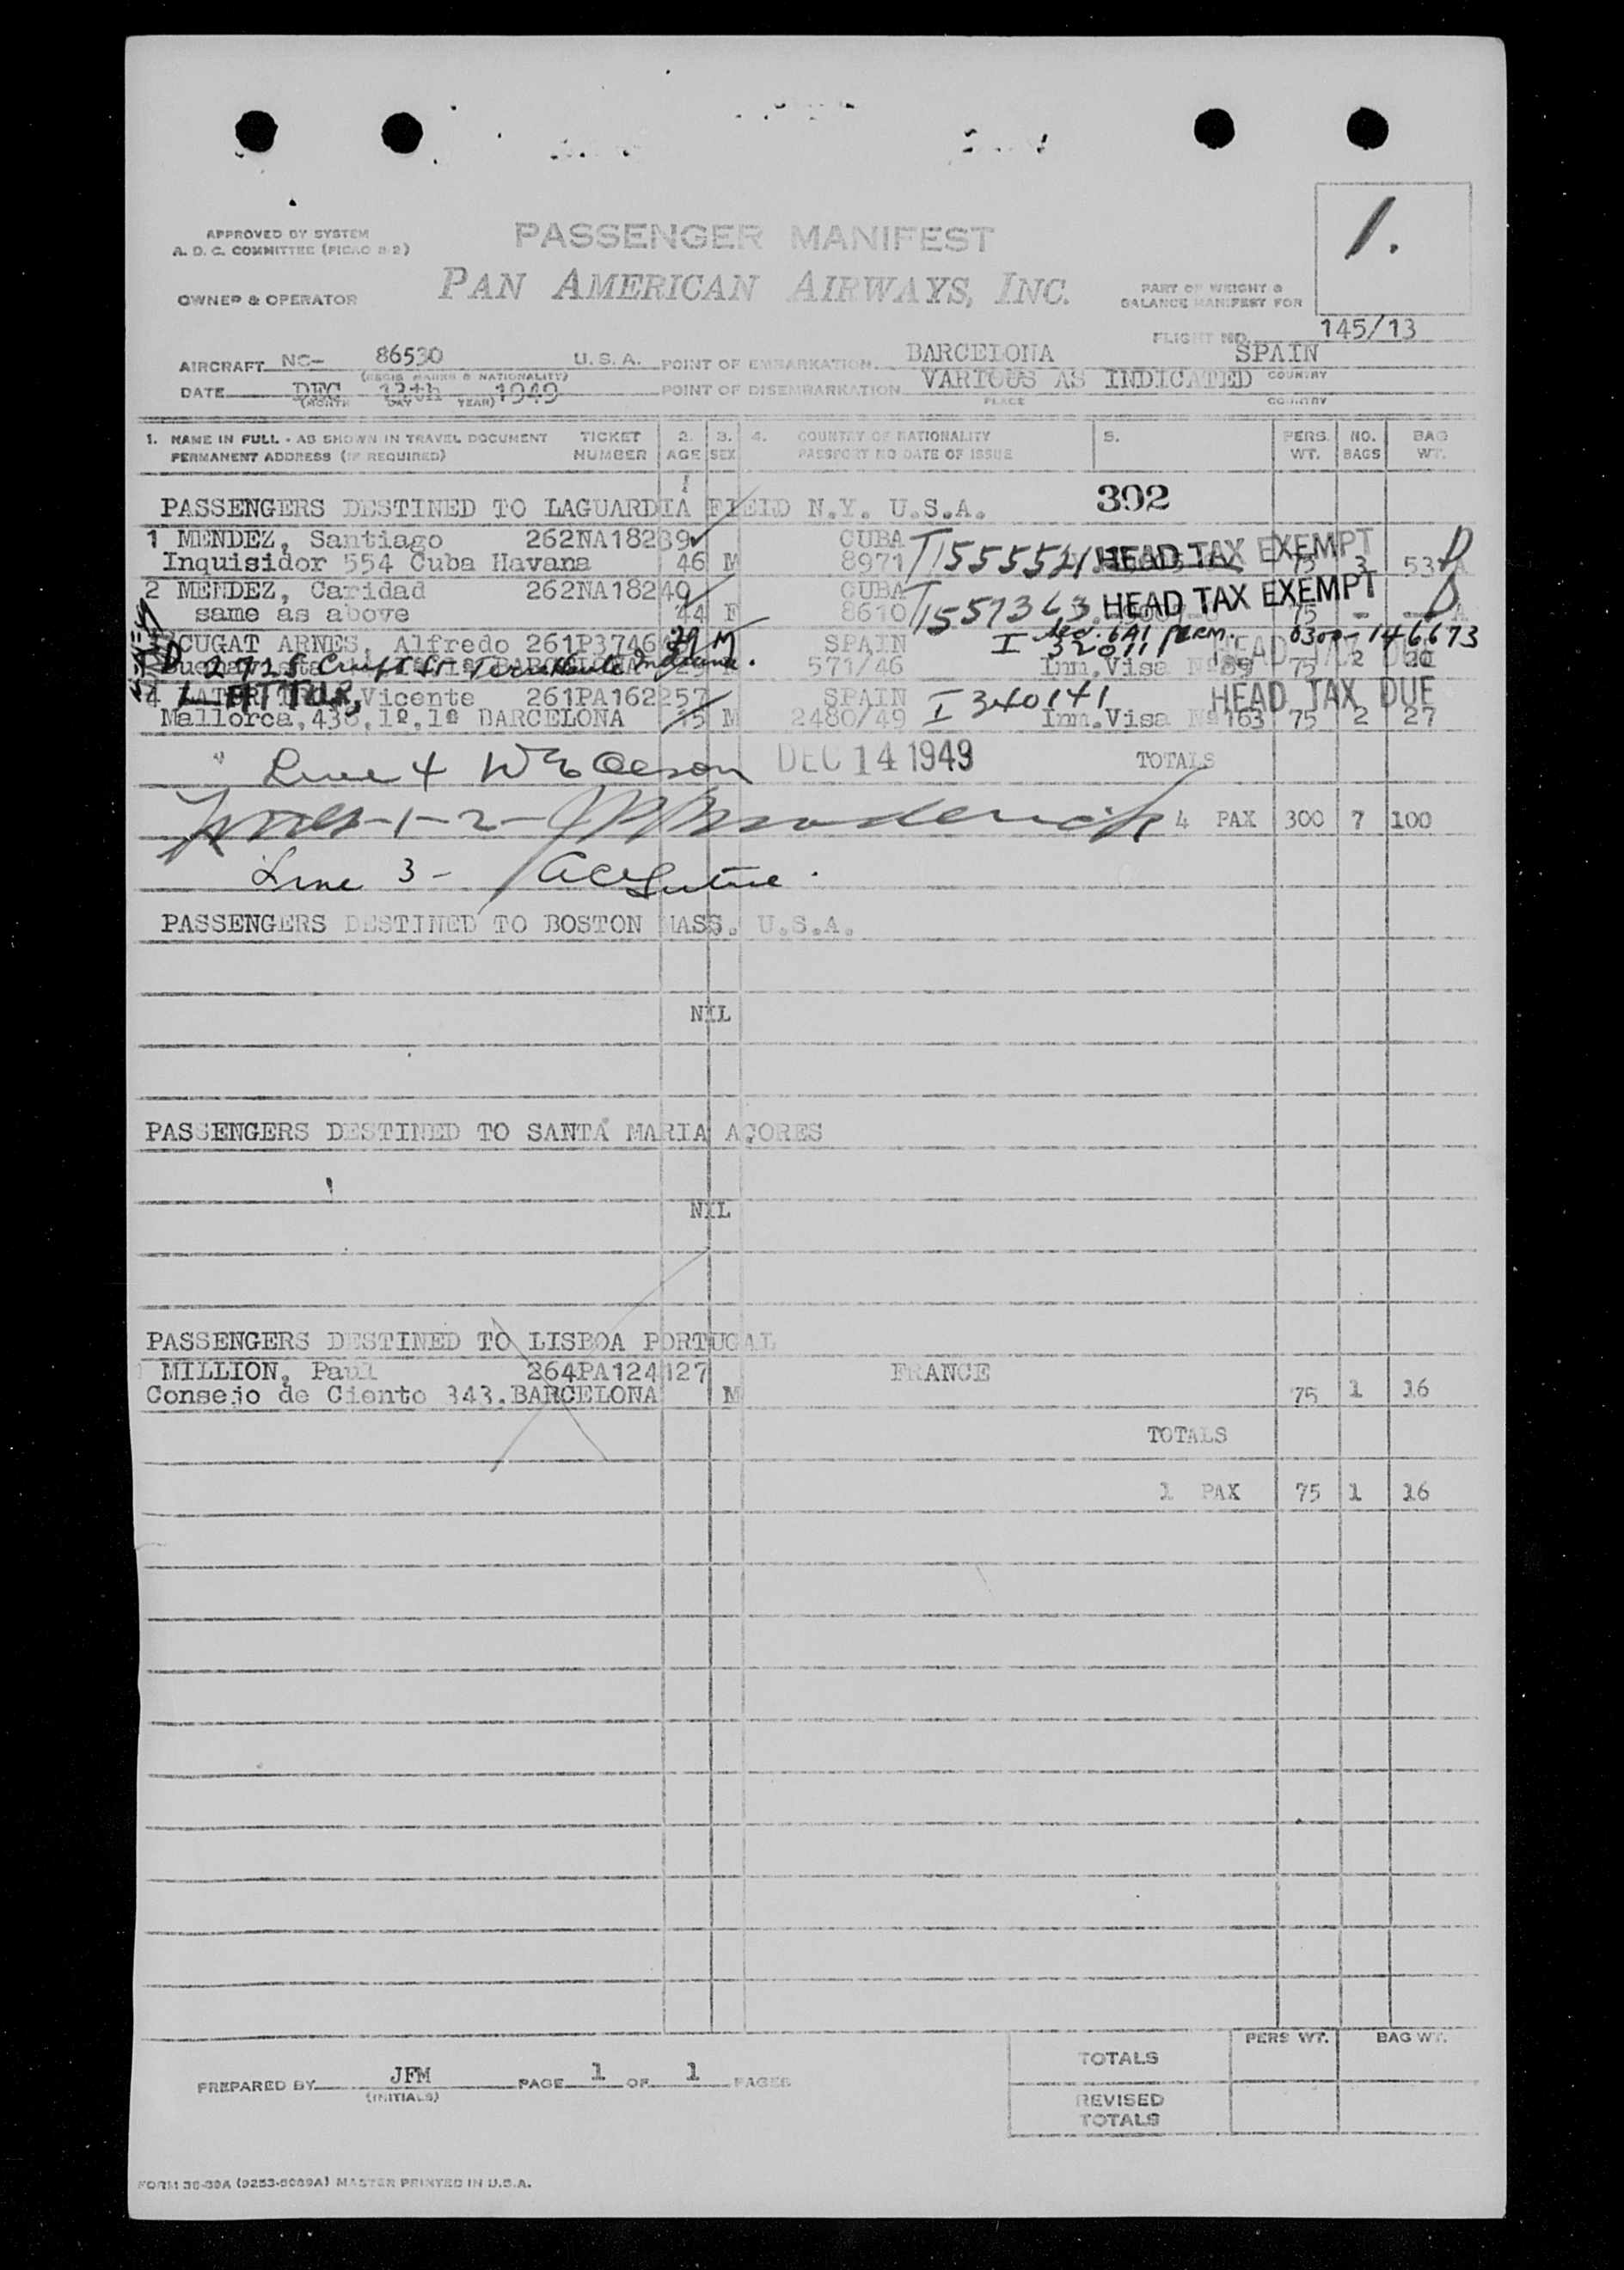 1.
APPROVED BY SYSTEM
A. D. C. COMMITTEE (PICAO 8-2)
PASSENGER MANIFEST
OWNER & OPERATOR
PAN AMERICAN AIRWAYS, INC.
PART OF WEIGHT &
BALANCE MANIFEST FOR
FLIGHT NO. 145/13
AIRCRAFT NC- 86530 U. S. A. POINT OF EMBARKATION BARCELONA SPAIN
(REGIS MARKS & NATIONALITY) COUNTRY
DATE DEC 13th 1949 POINT OF DISEMBARKATION VARIOUS AS INDICATED
(MONTH DAY YEAR) PLACE COUNTRY
1. NAME IN FULL - AS SHOWN IN TRAVEL DOCUMENT TICKET 2. 3. 4. COUNTRY OF NATIONALITY 5. PERS. NO. BAG
PERMANENT ADDRESS (IF REQUIRED) NUMBER AGE SEX PASSPORT NO DATE OF ISSUE WT. BAGS WT.
PASSENGERS DESTINED TO LAGUARDIA FIELD N.Y. U.S.A. 392
1 MENDEZ, Santiago 262NA18239 CUBA HEAD TAX EXEMPT
Inquisidor 554 Cuba Havana 46 M 8971 75 3 53
2 MENDEZ, Caridad 262NA18240 CUBA HEAD TAX EXEMPT
same as above 44 F 8610 T1557363 75 - -
CUGAT ARNES, Alfredo 261P3746 29 M SPAIN I 320711 PERM. 0300-146673
2725 Indiana. 571/46 Imm.Visa Nº 89 75 2 20
4 Vicente 261PA162257 SPAIN I 340141 HEAD TAX DUE
Mallorca,438,1º,1ª BARCELONA 15 M 2480/49 Imm.Visa Nº 163 75 2 27
Line 4 DEC 14 1949 TOTALS
1-2- 4 PAX 300 7 100
Line 3 -
PASSENGERS DESTINED TO BOSTON MASS. U.S.A.
NIL
PASSENGERS DESTINED TO SANTA MARIA AÇORES
NIL
PASSENGERS DESTINED TO LISBOA PORTUGAL
MILLION, Paul 264PA124127 FRANCE
Consejo de Ciento 343.BARCELONA M 75 1 16
TOTALS
1 PAX 75 1 16
PERS WT. BAG WT.
TOTALS
PREPARED BY JFM PAGE 1 OF 1 PAGES
(INITIALS)
REVISED
TOTALS
FORM 38-39A (9253-5089A) MASTER PRINTED IN U.S.A.